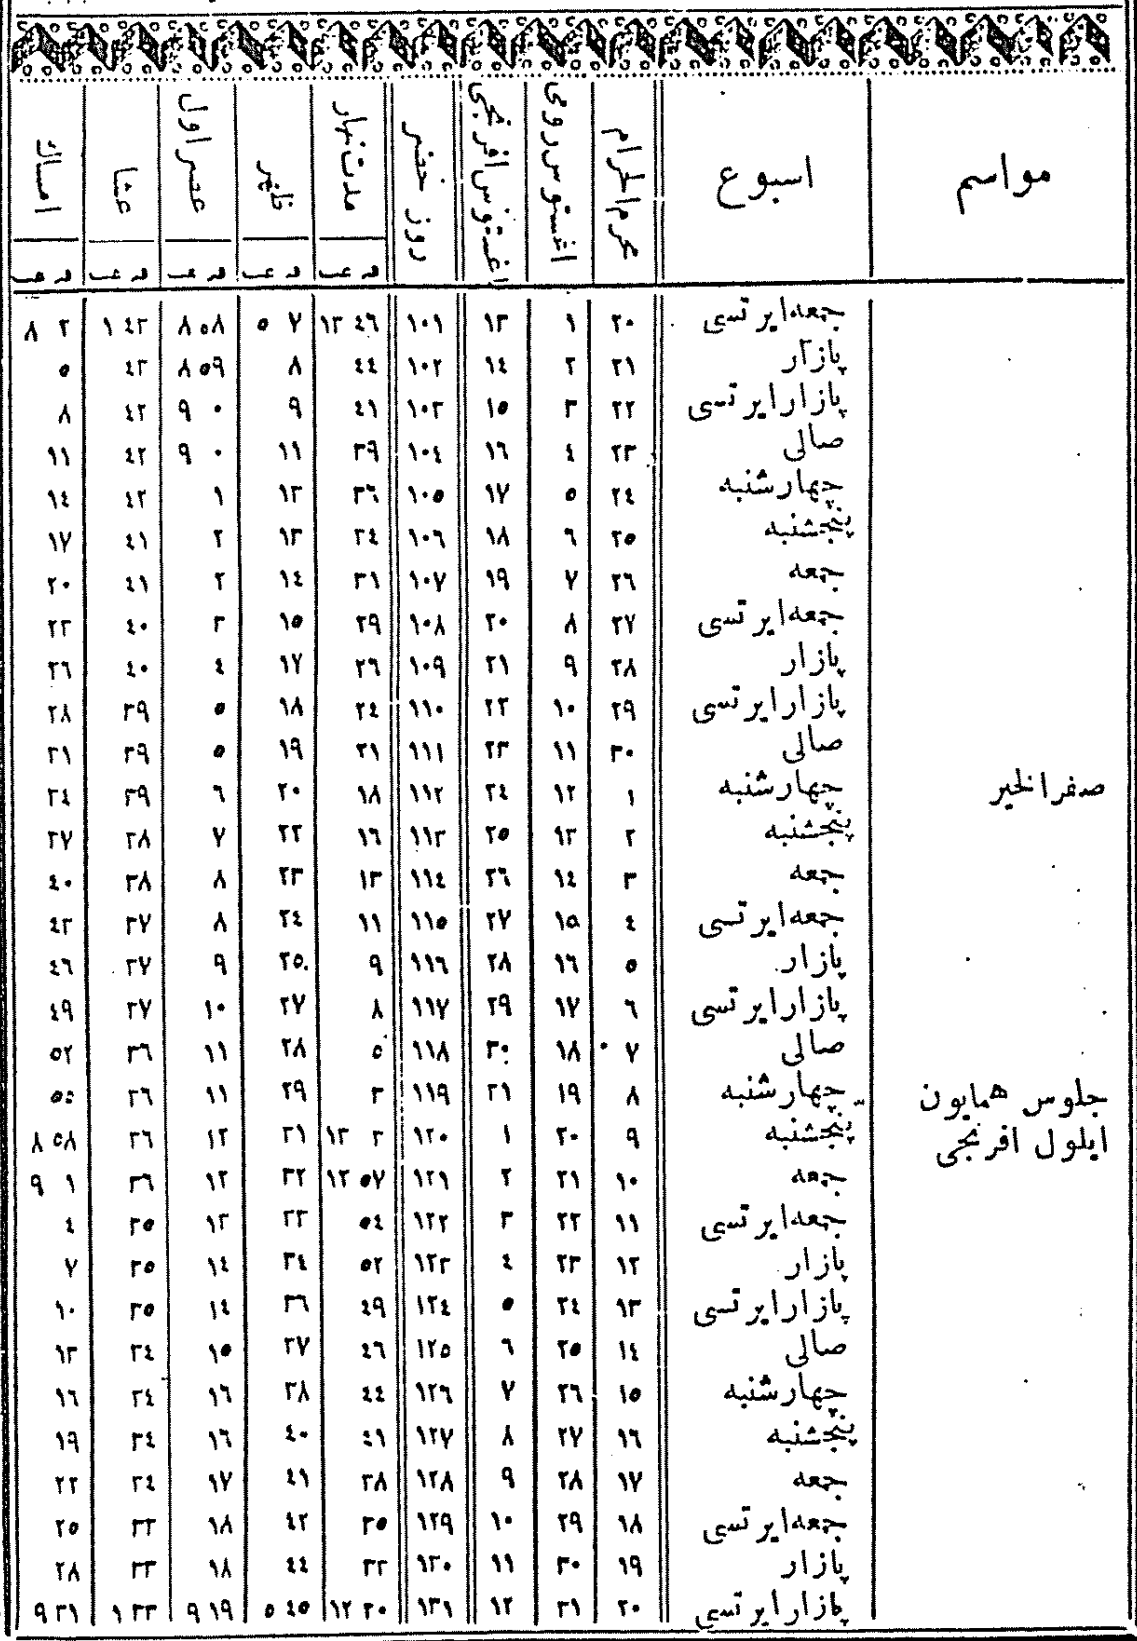 مواسم اسبوع محرم الحرام اغستوس رومی اغستوس افرنجی روز خضر مدت نهار ظهر عصر اول عشا امساك
جمعه ایرتسی ٢٠ ١ ١٣ ١٠١ ٤٦ ١٣ ٧ ٥ ٥٨ ٨ ٤٣ ١ ٢ ٨
پازار ٢١ ٢ ١٤ ١٠٢ ٤٤ ٨ ٥٩ ٨ ٤٣ ٥
پازار ایرتسی ٢٢ ٣ ١٥ ١٠٣ ٤١ ٩ ٠ ٩ ٤٢ ٨
صالی ٢٣ ٤ ١٦ ١٠٤ ٣٩ ١١ ٠ ٩ ٤٢ ١١
چهارشنبه ٢٤ ٥ ١٧ ١٠٥ ٣٦ ١٢ ١ ٤٢ ١٤
پنجشنبه ٢٥ ٦ ١٨ ١٠٦ ٣٤ ١٣ ٢ ٤١ ١٧
جمعه ٢٦ ٧ ١٩ ١٠٧ ٣١ ١٤ ٢ ٤١ ٢٠
جمعه ایرتسی ٢٧ ٨ ٢٠ ١٠٨ ٢٩ ١٥ ٣ ٤٠ ٢٣
پازار ٢٨ ٩ ٢١ ١٠٩ ٢٦ ١٧ ٤ ٤٠ ٢٦
پازار ایرتسی ٢٩ ١٠ ٢٢ ١١٠ ٢٤ ١٨ ٥ ٣٩ ٢٨
صالی ٣٠ ١١ ٢٣ ١١١ ٢١ ١٩ ٥ ٣٩ ٣١
صفر الخیر چهارشنبه ١ ١٢ ٢٤ ١١٢ ١٨ ٢٠ ٦ ٣٩ ٣٤
پنجشنبه ٢ ١٣ ٢٥ ١١٣ ١٦ ٢٢ ٧ ٣٨ ٣٧
جمعه ٣ ١٤ ٢٦ ١١٤ ١٣ ٢٣ ٨ ٣٨ ٤٠
جمعه ایرتسی ٤ ١٥ ٢٧ ١١٥ ١١ ٢٤ ٨ ٣٧ ٤٣
پازار ٥ ١٦ ٢٨ ١١٦ ٩ ٢٥ ٩ ٣٧ ٤٦
پازار ایرتسی ٦ ١٧ ٢٩ ١١٧ ٨ ٢٧ ١٠ ٣٧ ٤٩
صالی ٧ ١٨ ٣٠ ١١٨ ٥ ٢٨ ١١ ٣٦ ٥٢
جلوس همایون چهارشنبه ٨ ١٩ ٣١ ١١٩ ٣ ٢٩ ١١ ٣٦ ٥٥
ایلول افرنجی پنجشنبه ٩ ٢٠ ١ ١٢٠ ٢ ١٣ ٣١ ١٢ ٣٦ ٥٨ ٨
جمعه ١٠ ٢١ ٢ ١٢١ ٥٧ ١٢ ٣٢ ١٢ ٣٦ ١ ٩
جمعه ایرتسی ١١ ٢٢ ٣ ١٢٢ ٥٤ ٣٣ ١٣ ٣٥ ٤
پازار ١٢ ٢٣ ٤ ١٢٣ ٥٢ ٣٤ ١٤ ٣٥ ٧
پازار ایرتسی ١٣ ٢٤ ٥ ١٢٤ ٤٩ ٣٦ ١٤ ٣٥ ١٠
صالی ١٤ ٢٥ ٦ ١٢٥ ٤٦ ٣٧ ١٥ ٣٤ ١٣
چهارشنبه ١٥ ٢٦ ٧ ١٢٦ ٤٤ ٣٨ ١٦ ٣٤ ١٦
پنجشنبه ١٦ ٢٧ ٨ ١٢٧ ٤١ ٤٠ ١٦ ٣٤ ١٩
جمعه ١٧ ٢٨ ٩ ١٢٨ ٣٨ ٤١ ١٧ ٣٤ ٢٢
جمعه ایرتسی ١٨ ٢٩ ١٠ ١٢٩ ٣٥ ٤٢ ١٨ ٣٣ ٢٥
پازار ١٩ ٣٠ ١١ ١٣٠ ٣٣ ٤٤ ١٨ ٣٣ ٢٨
پازار ایرتسی ٢٠ ٣١ ١٢ ١٣١ ٣٠ ١٢ ٤٥ ٥ ١٩ ٩ ٣٣ ١ ٣١ ٩